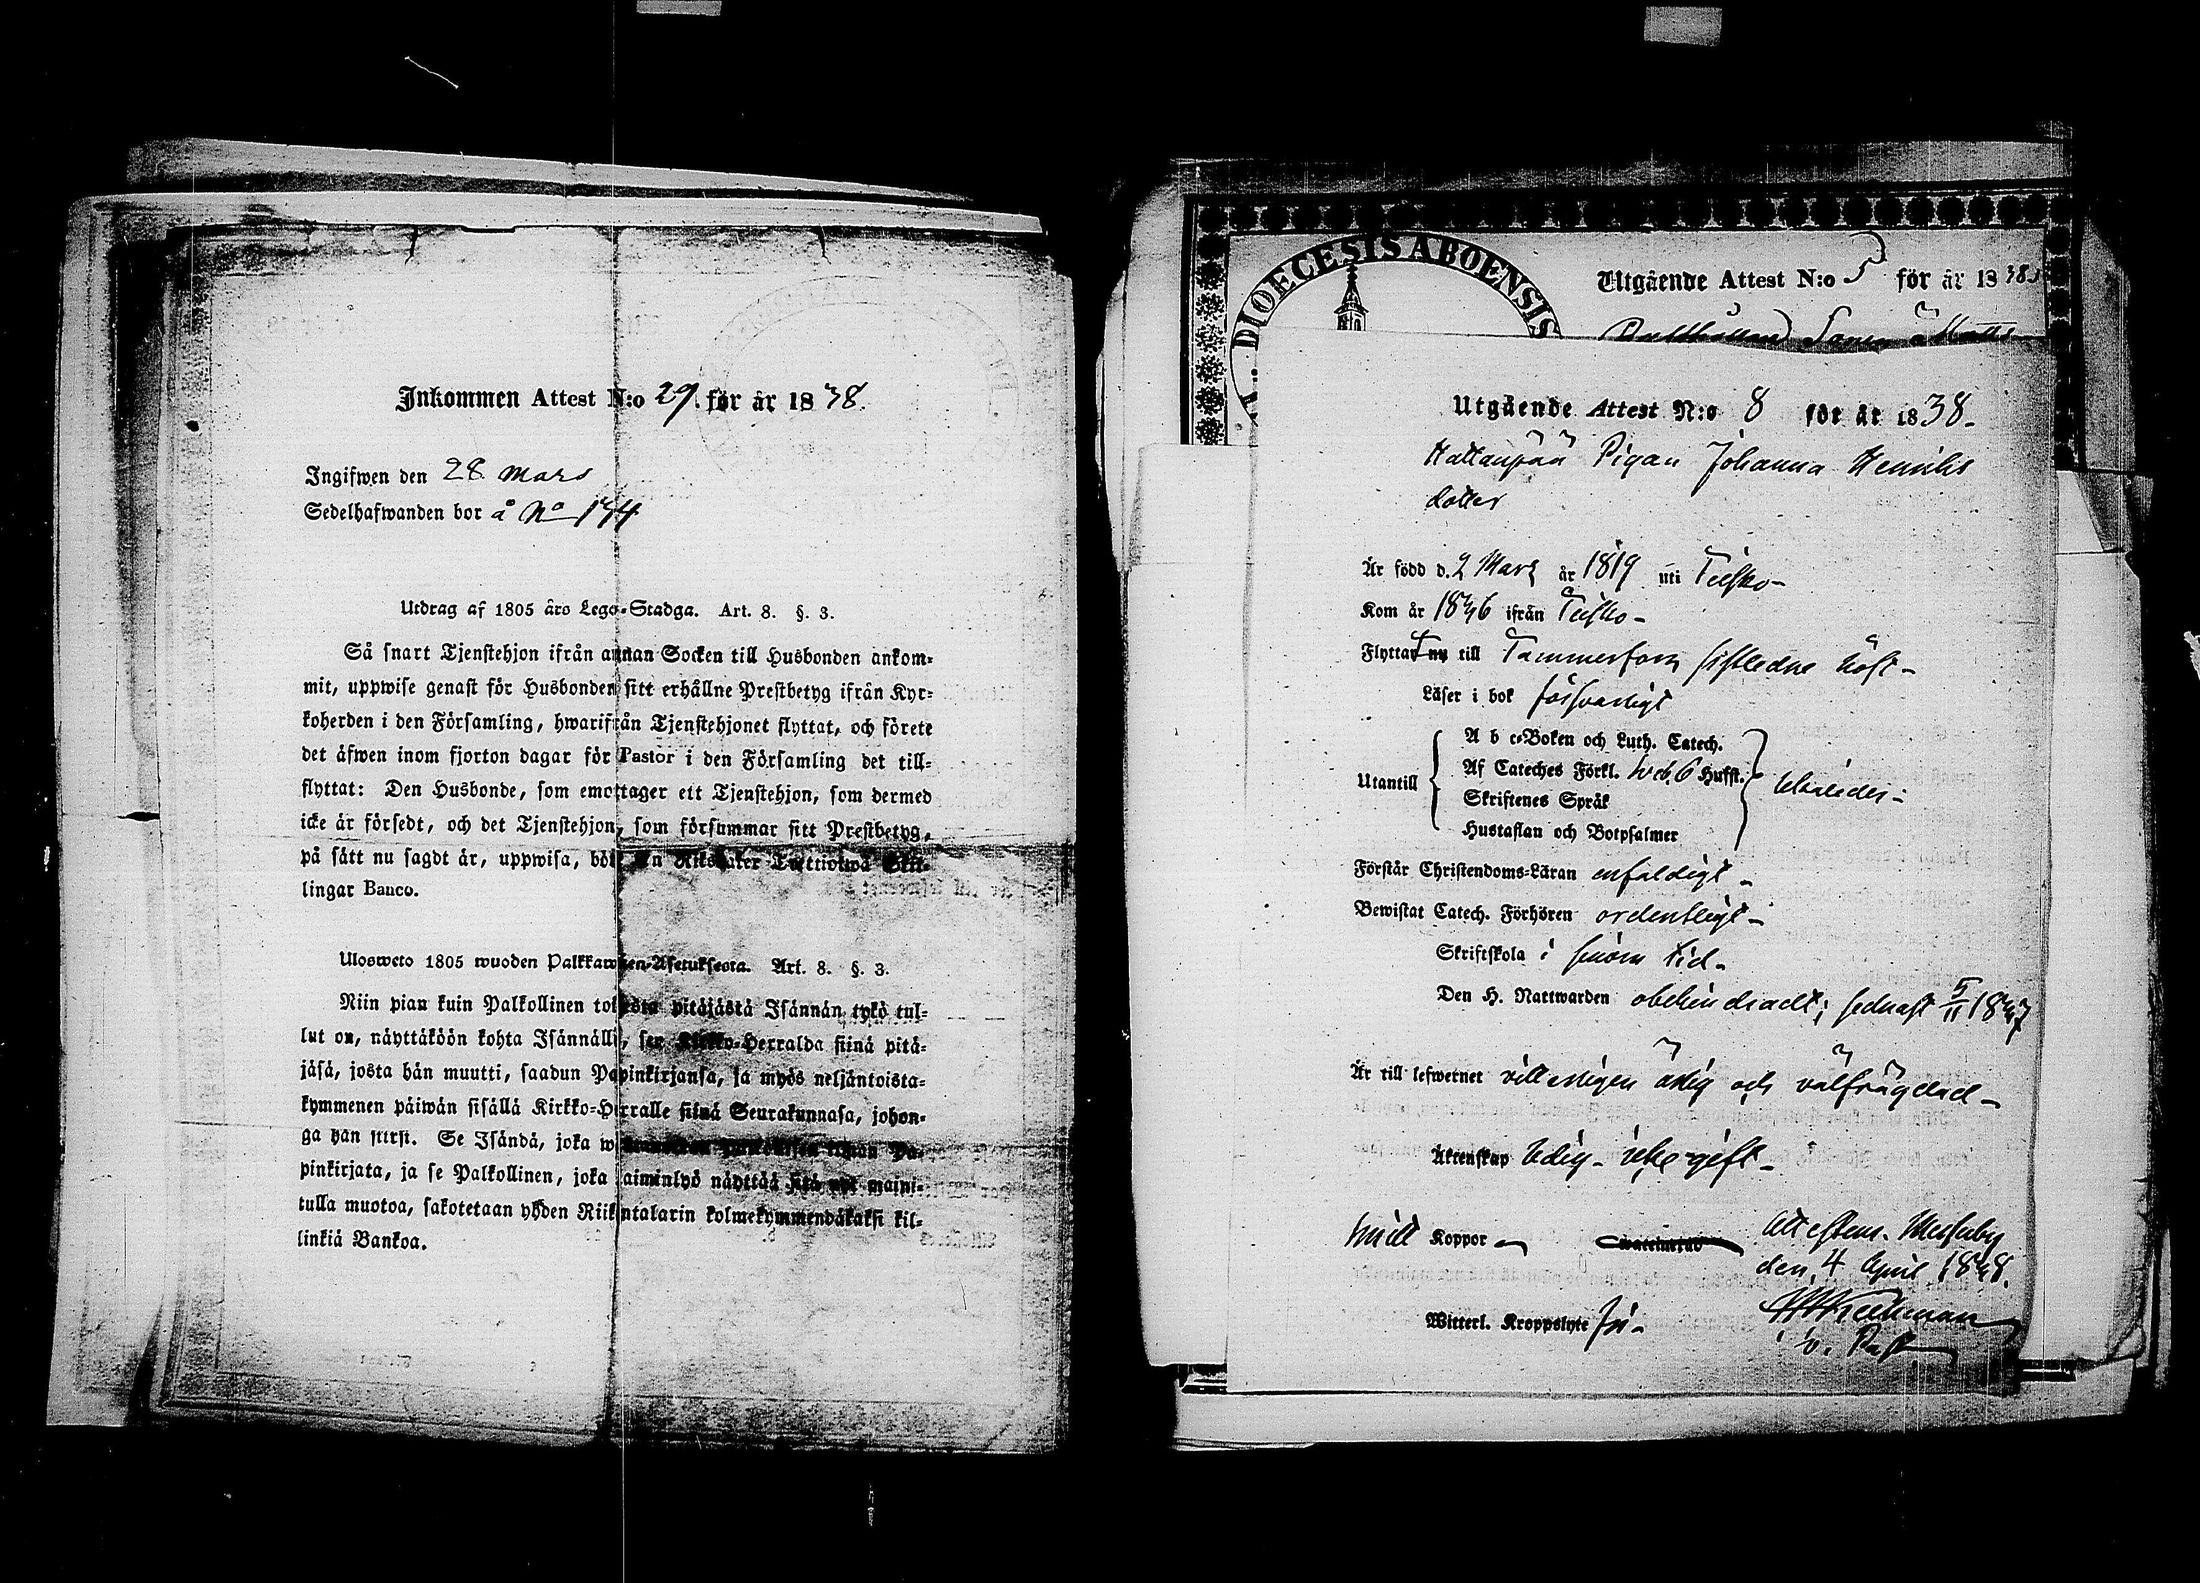 Inkommen Attest N:o 29. för år 1838.
Ingifwen den 28 mars
Sedelhafwanden bor å No 144
Utdrag af 1805 års Lego-Stadga. Art. 8. §. 3.
Så snart Tjenstehjon ifrån annan Socken till Husbonden ankom-
mit, uppwise genast för Husbonden sitt erhållne Prestbetyg ifrån Kyr-
koherden i den Församling, hwarifrån Tjenstehjonet flyttat, och förete
det äfwen inom fjorton dagar för Pastor i den Församling det till-
flyttat: Den Husbonde, som emottager ett Tjenstehjon, som dermed
icke är försedt, och det Tjenstehjon, som försummar sitt Prestbetyg,
på sätt nu sagdt är, uppwisa, böte en Riksdaler Trettiotwå Skil-
lingar Banco.
Ulosweto 1805 wuoden Palkkawäen-Asetuksesta. Art. 8. §. 3.
Niin pian kuin Palkollinen toisesta pitäjästä Isännän tykö tul-
lut on, näyttäköön kohta Isännälli, sen Kirkko-Herralda siinä pitä-
jäsä, josta hän muutti, saadun Papinkirjansa, ja myös neljäntoista-
kymmenen päiwän sisällä Kirkko-Herralle siinä Seurakunnasa, johon-
ga hän siirsi. Se Isändä, joka Pa-
pinkirjata, ja se Palkollinen, joka laiminlyö näyttää sitä nyt maini-
tulla muotoa, sakotetaan yhden Riikintalarin kolmekymmendäkaksi kil-
linkiä Bankoa.
DIOECESIS ABOENSIS
Utgående Attest N:o 5 för år 1838
Utgående Attest N:o 8 för år 1838.
Hattanpää Pigan Johanna Henriks
dotter
Är född d. 2 Mars år 1819 uti Teisko
Kom år 1836 ifrån Teisko
Flyttat nu till Tammerfors sistledne höst
Läser i bok försvarligt
A b c-Boken och Luth. Catech.
Utantill Af Cateches Förkl. 6 Hufst.
Skriftenes Språk
Hustaflan och Botpsalmer
Förstår Christendoms-Läran enfaldigt
Bewistat Catech. Förhören ordentligt
Skriftskola i sinom tid
Den H. Nattwarden obehindradt; sednast 5/11 1837
Är till lefwernet ärlig och välfrägdad
Äktenskap ledig icke gift
haft Koppor
Attesteras. Messuby
den 4 April 1838.
Witterl. Kroppslyte
v. Past